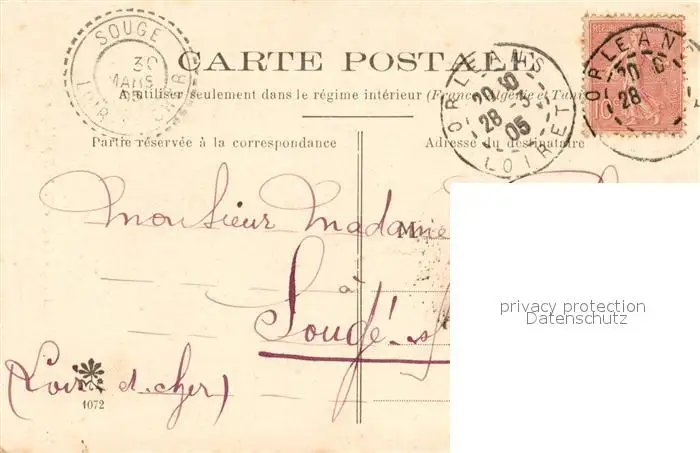 SOUGE
30
MARS
05
LOIR-ET-CHER
CARTE POSTALE
A utiliser seulement dans le régime intérieur (France, Algérie et Tunisie
ORLEANS
20
28 -3
05
LOIRET
ORLEAN
28
10
Partie réservée à la correspondance
Adresse du destinataire
Monsieur Madame
M
à
Sougé s/
(Loir et cher)
1072
privacy protection
Datenschutz